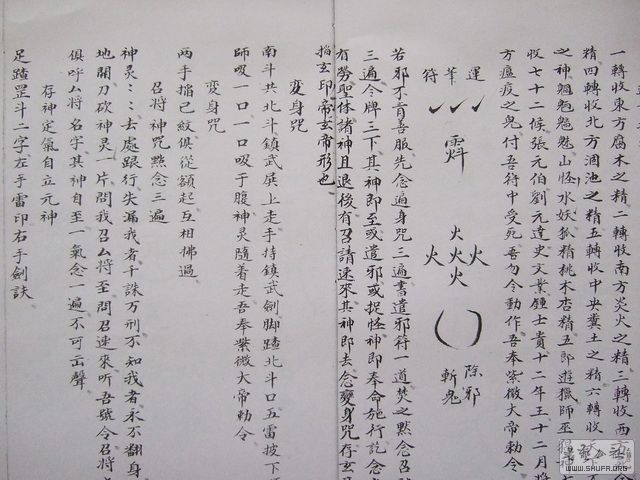 一轉收東方腐木之精二轉收南方炎火之精三轉收西方
精四轉收北方涸池之精五轉收中央糞土之精六轉收
之神魍魎魑魅山怪水妖狐精桃木杏精五郎遊獵師巫
收七十二候張元伯劉元達史文業鍾士貴十二年王十二月將
方瘟疫之鬼付吾符中受死吾勿令動作吾奉紫微大帝勅令
運筆符
火火火火
除邪
斬鬼
若邪不肯善服先念遍身咒三遍書遣邪符一道焚之黙念召
三遍令牌三下其神即至或遣邪或捉怪神即奉命施行訖念
有勞聖体諸神且退後有召請速來其神即去念變身咒存玄
指玄印帝玄帝形也
變身咒
南斗共北斗鎮武殿上走手持鎮武劍脚踏北斗口五雷披下
師吸一口一口吸于腹神灵隨着走吾奉紫微大帝勅令
變身咒
兩手搯己紋俱從額起互相拂過
召將神咒黙念三遍
神灵去處跟行失漏我者千誅万刑不知我者永不翻身
地開刀砍神灵一片問我召厶將至問召速來听吾號令召將
俱呼厶將名字其神自至一氣念一遍不可出聲
存神定氣自立元神
足踏罡斗二字左手雷印右手劍訣
WWW.SHUFA.ORG